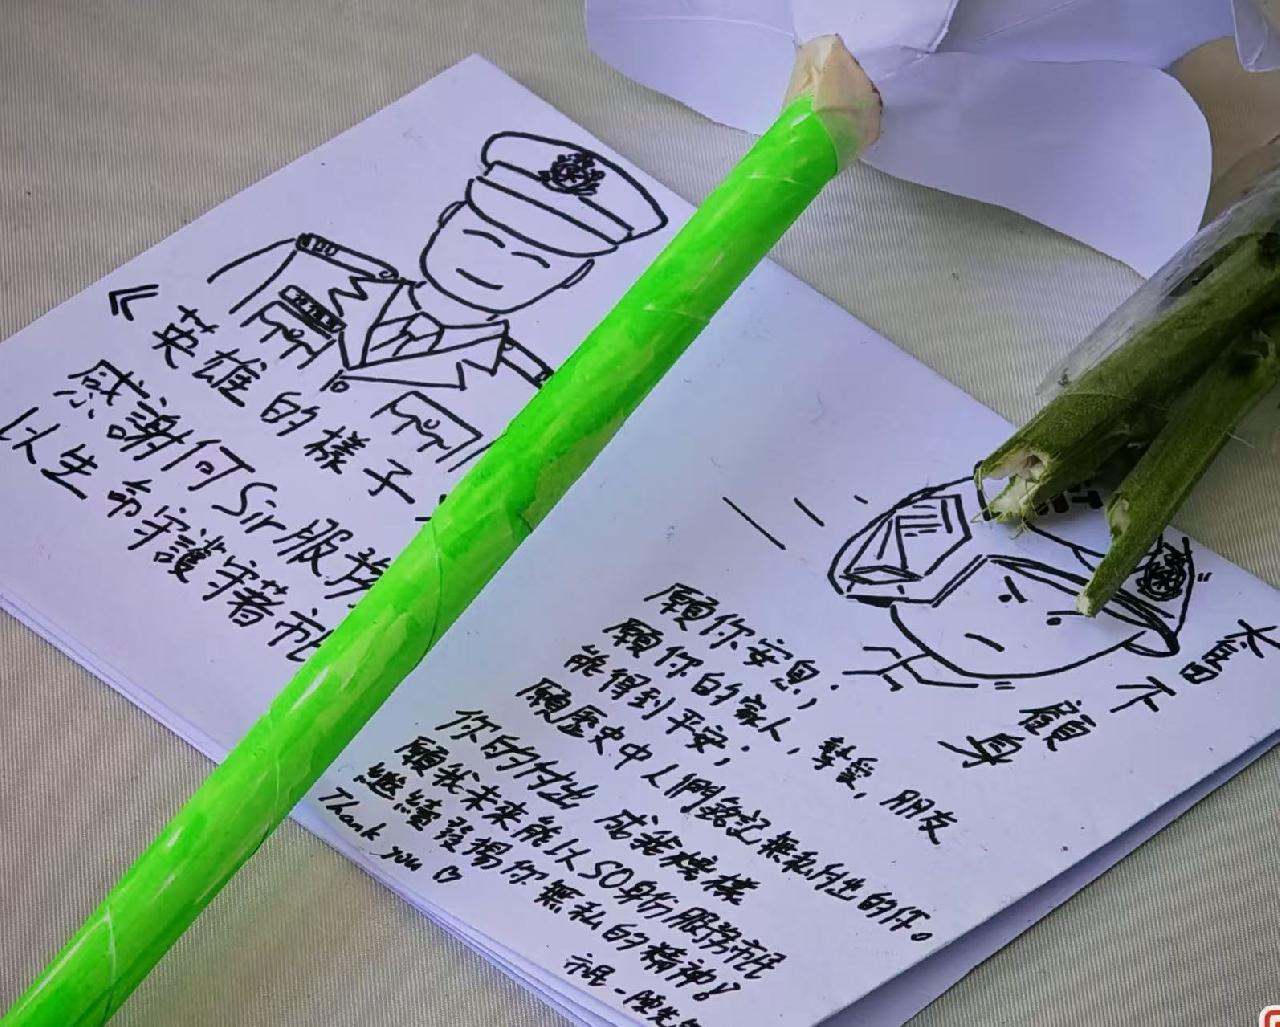 《英雄的樣子
感謝何Sir服務
以生命守護守著市
奮不顧身
願你安息；
願你的家人，摯愛，朋友
能得到平安；
願歷史中人們銘記無私付出的你。
你的付出 成我榜樣
願我未來能以SO身份服務市民
繼續發揚你無私的精神！
Thank you
市民-陳先